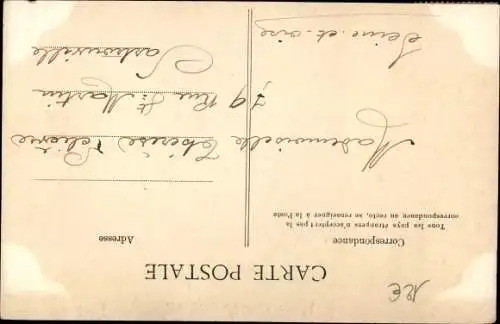 CARTE POSTALE
Correspondance
Tous les pays étrangers n'acceptent pas la
correspondance au recto, se renseigner à la Poste
Adresse
Mademoiselle Thérèse
79 Rue St Martin
Seine-et-oise
12 €